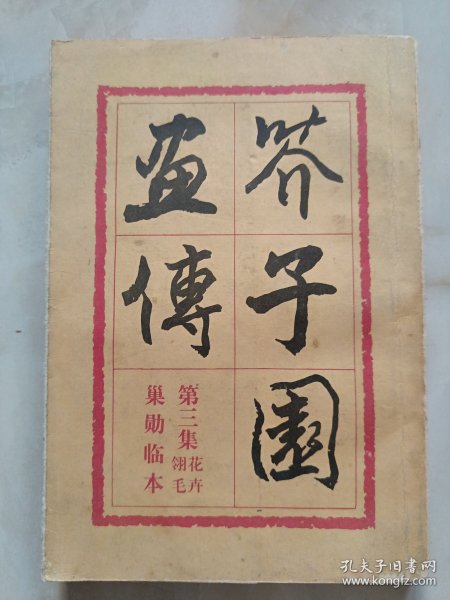 芥子園
畫傳
第三集 花卉 翎毛
巢勋临本
孔夫子旧书网
www.kongfz.com